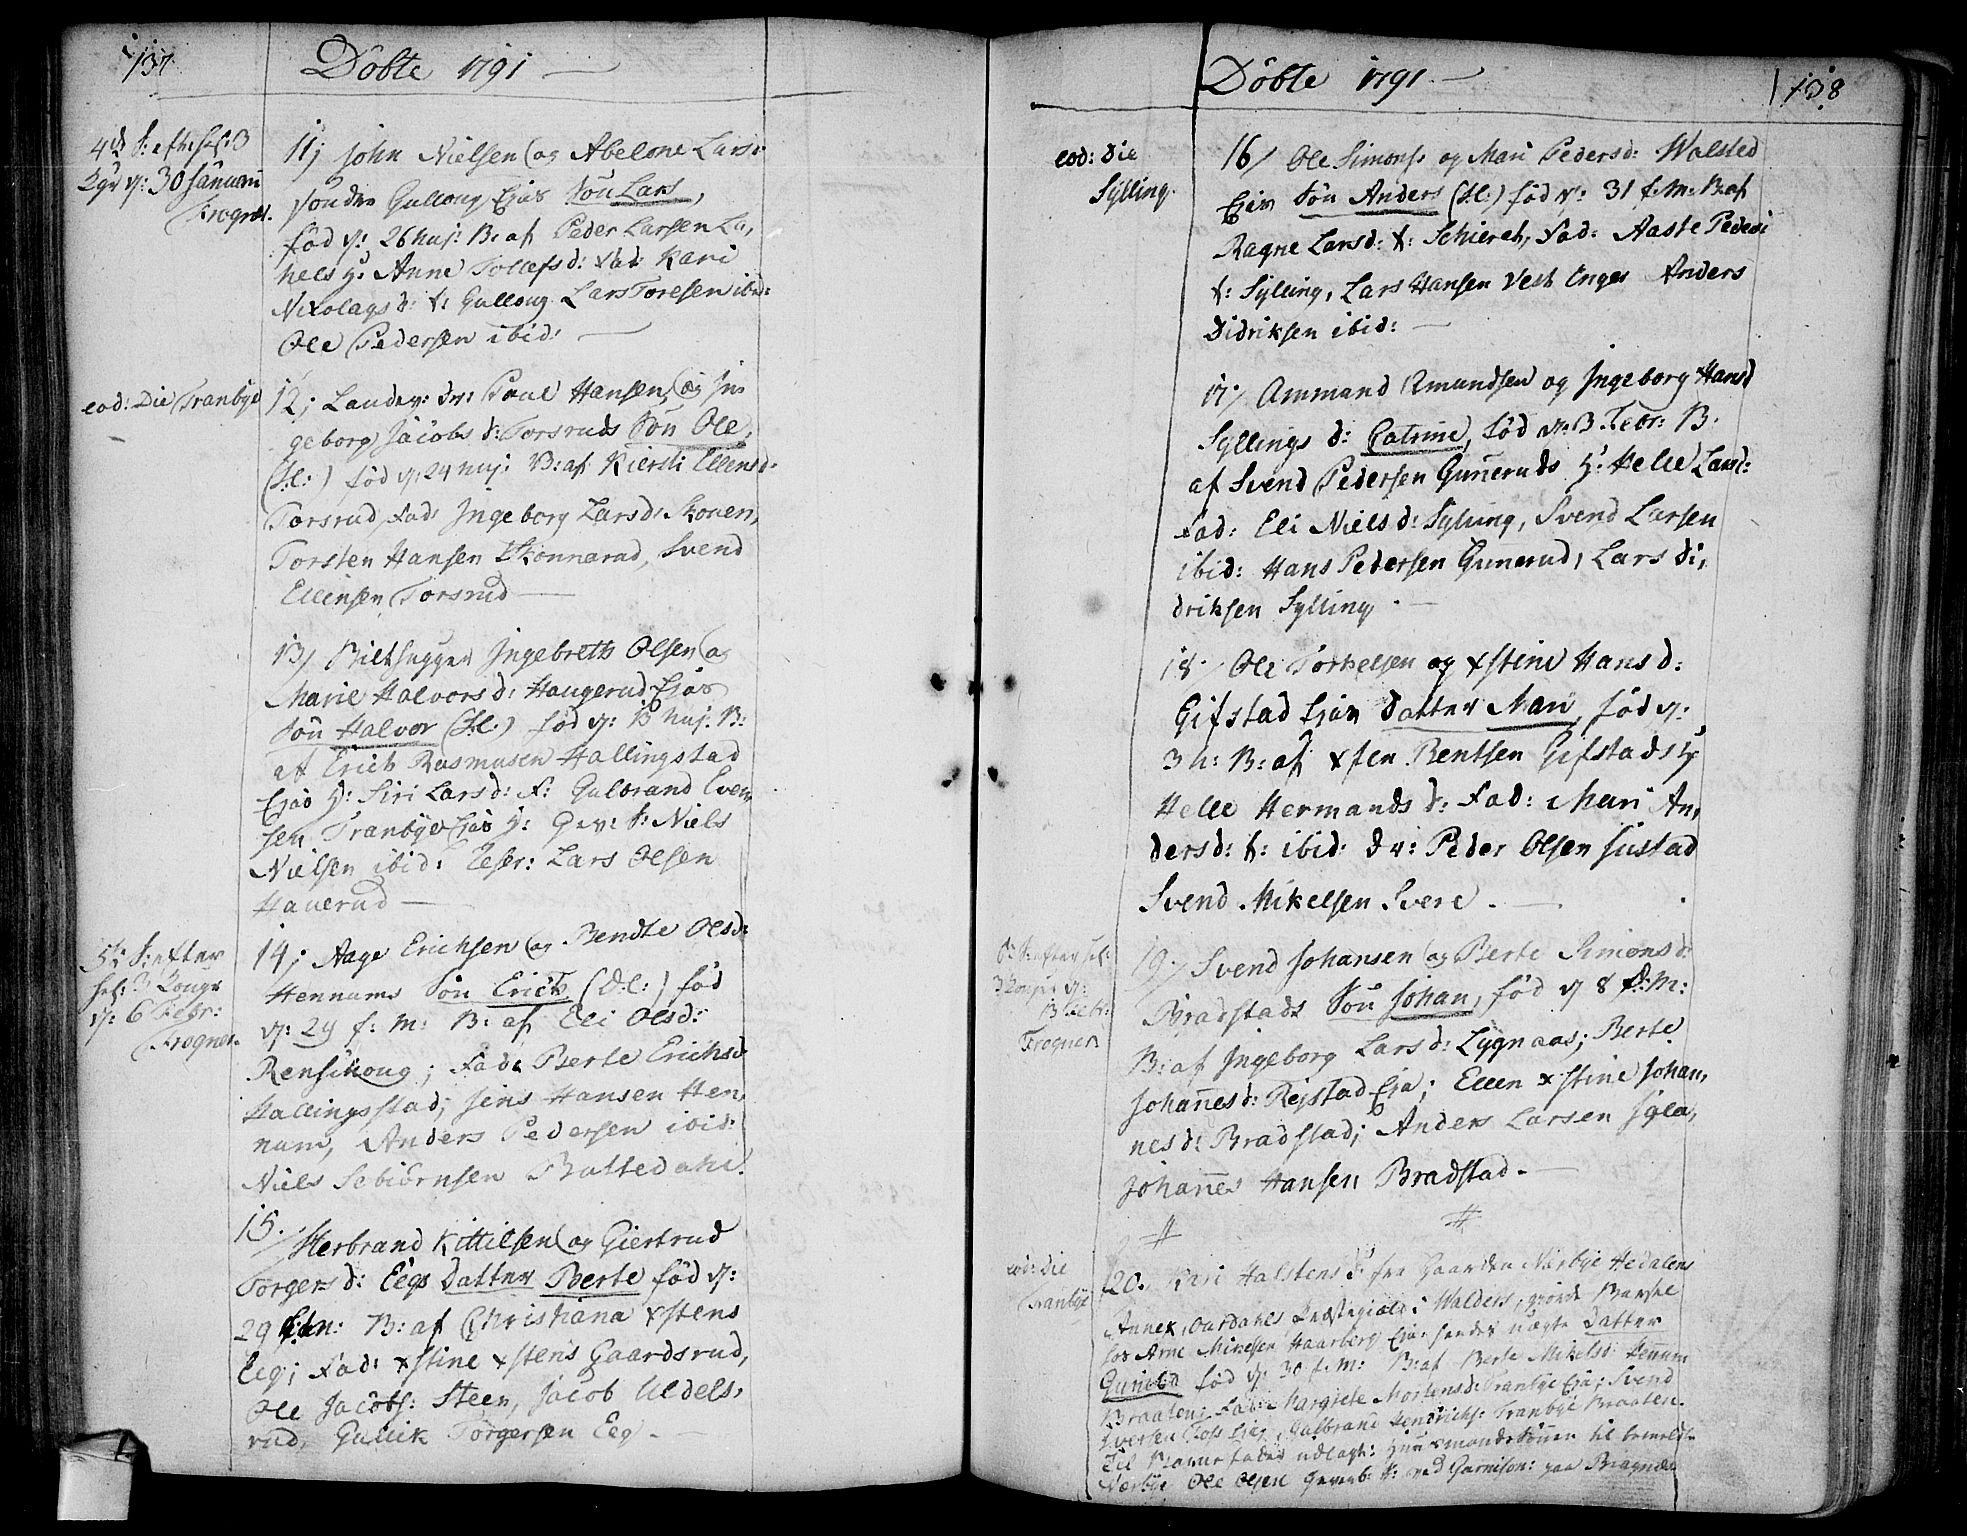 137
Döbte 1791
4de S: eft: hel: 3
Kgr d: 30 Januari
Frogner.
11, John Nielsen og Abelone Lars:
sondre Gulloug Ejes Sön Lars,
föd d: 26 huj: B: af Peder Larsen La,
hels H: Anne Tollefsd: Fad: Kari
Nikolagsd: t: Gulloug Lars Toresen ibid:
Ole Pedersen ibid:
eod: Die Tranbye
12, Landev: Dr: Poul Hansen og In
geborg Jacobsd: Torsruds Sön Ole,
(H:) föd d: 24 huj: B: af Kiersti Ellensd.
Torsrud Fad: Ingeborg Larsd: Skouen,
Torsten Hansen Skonnarud, Svend
Ellensen Torsrud
13/ Bilthugger Ingebreth Olsen og
Marie Halvorsd: Haugerud Ejes
Sön Halvor (H:) föd d: 13 huj. B:
af Erich Rasmusen Hallingstad
Ejes H: Siri Larsd: F: Gulbrand Even
sen Tranbye Ejes H: Gev: S: Niels
Nielsen ibid: Lars Olsen
Hauerud
5te S: efter
hel: 3 Konge
d: 6 Febr:
Frogner.
14, Aage Erichsen og Bendte Olsd:
Hennums Sön Erich (H:) föd
d: 29 f: M: B: af Eli Olsd:
Rensikoug; Fad: Berte Erichsd
Hallingsstad; Jens Hansen Hen,
num, Anders Pedersen ibid:
Niels Sebiörnsen Battedahl.
15.
Herbrand Kittilsen og Giertrud
Torgersd: Eegs Datter Berte föd d:
29 Jan: B: af Christiana Xstens
Eeg; Fad: Xstine Xstens Gaardsrud,
Ole Jacobs: Steen, Jacob Uldels,
rud, Gulick Torgersen Eeg.
138
Döbte 1791.
eod: Die
Sylling.
16/ Ole Simons og Mari Pedersd: Walsted
Ejer Sön Anders (H:) föd d: 31 f: M: B: af
Ragne Larsd: t: Schieret, Fad: Aaste Peders
t: Sylling, Lars Hansen Vest Enger Anders
Didriksen ibid:
17/ Ammund Amundsen og Ingeborg Hansd
Syllings d: Catrine, föd d: 3 Febr: B.
af Svend Pedersen Guneruds H: Helle Larsd:
Fad: Eli Nielsd: Sylling, Svend Larsen
ibid: Hans Pedersen Gunerud, Lars Di,
driksen Sylling.
18. Ole Torkelsen og Xstine Hansd:
Gifstad Ejer Datter Mari, föd d:
3 h: B: af Xsten Bentsen Gifstads H
Helle Hermandsd: Fad: Mari An,
dersd: t: ibid: Dr: Peder Olsen Justad
Svend Mikelsen Svere.
6: S: efter hel:
3 Konger d:
13 Febr:
Frogner
19/ Svend Johansen og Berte Simonsd:
Bradstads Sön Johan, föd d 8 f: M:
B: af Ingeborg Larsd: Lygnaas; Berte
Johannesd: Rejstad Eje; Ellen Xstine Johan,
nesd: Bradstad; Anders Larsen
Johannes Hansen Bradstad.
# #
eod: Die
Tranbye
20. Kari Halstensd: fra Gaarden Nærbye Hedalens
Annex, Ourdahls Præstegiæld i Walders; giorde Barsel
hos Arne Mikelsen Haarberg Eje: hendes uægte Datter
Gunild föd d: 30 f: M: B: af Berte Mikelsd: Hennum
Braaten; Fad: Margrete Mortensd: Tranbye Eje; Svend
Iversen Eje, Gulbrand Hendrichs: Tranbye Braaten.
Til Barnefader udlagt: Huusmandssönnen til bemeldte
Nærbye Ole Olsen Gevorb: S: ved Garnison: paa Bragnæs